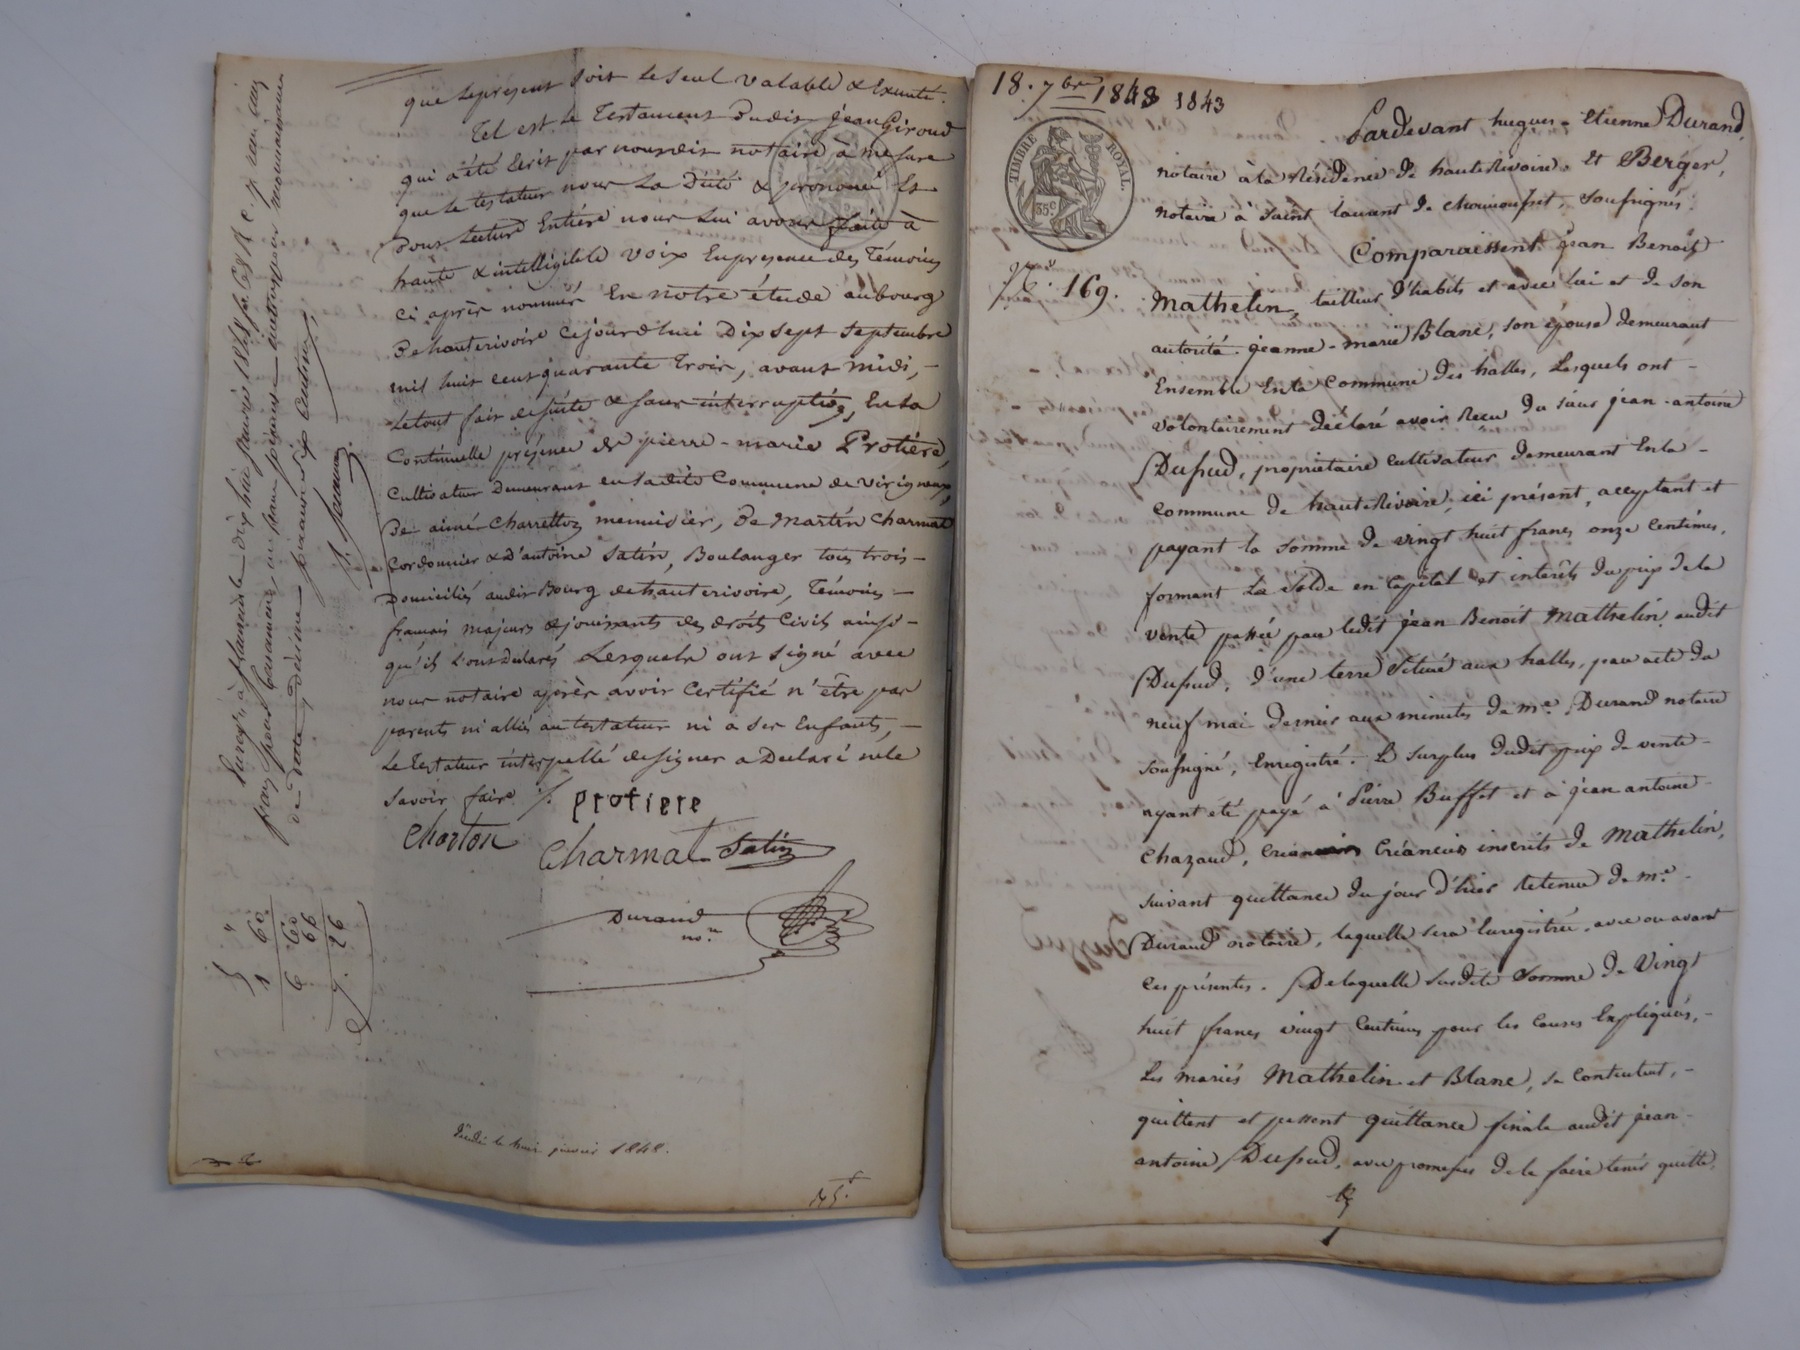 que le présent soit le seul valable & Exécuté.
Tel est le Testament Dudit jean Giroud
qui a été Ecrit par nousdit notaire à mesure
que le testateur nous La Dicté & prononcé Et
Dont Lecture Entière nous lui avons faite à
haute & intelligible voix En presence des Témoins
ci après nommés En notre étude au bourg
De hauterivoire Cejourd'hui Dix sept septembre
mil huit cent quarante trois, avant midi, -
Le tout fait de suite & sans interruption, En la
Continuelle présence de pierre-marie Protière,
Cultivateur Demeurant en ladite Commune de virigneux,
De aimé Charretton menuisier, De Martin Charmat
Cordonnier & d'antoine Satin, Boulanger tous trois -
Domiciliés audit Bourg de hauterivoire, Témoins -
français majeurs & jouissants des droits Civils ainsi -
qu'ils L'ont Déclarés Lesquels ont signé avec
nous notaire après avoir Certifié n'être pas
parents ni alliés au testateur ni a ses Enfants, -
Le Testateur interpellé de signer a Declaré ne le
savoir faire /.
protiere
Charton
Charmat Satin
Durand
no.re
janvier 1848.
Enregistré à janvier 1848
18. 7bre 1848 1843
TIMBRE ROYAL.
35c
Pardevant hugues-Etienne Durand,
notaire à la Résidence de hauteRivoire. Et Berger,
notaire à Saint laurent de chamousset, Soussignés.
Comparaissent jean Benoit
No. 169.
Mathelin, tailleur d'habits et avec lui et de son
autorité jeanne-marie Blanc, son épouse, demeurant
Ensemble En la Commune des halles, Lesquels ont -
volontairement déclaré avoir Reçu du sieur jean-antoine
Dupud, propriétaire cultivateur demeurant En la -
Commune de hauteRivoire, ici présent, acceptant et
payant la somme de vingt huit francs onze Centimes,
formant Le Solde en Capital et intérêts du prix de la
vente passée par ledit jean Benoit Mathelin audit
Dupud, d'une terre située aux halles, par acte du
neuf mai dernier aux minutes de me. Durand notaire
soussigné, Enregistré. Le surplus dudit prix de vente -
ayant été payé à Pierre Buffet et à jean antoine -
Chazaud, Créanciers inscrits de Mathelin,
suivant quittance du jour d'hier Retenue de me. -
Durand notaire, laquelle sera Enregistrée, avec ou avant
Ces présentes. De laquelle susdite somme de Vingt
huit francs vingt Centimes pour les Causes Expliquées, -
Les mariés Mathelin et Blanc, se Contentent, -
quittent et passent quittance finale audit jean -
antoine Dupud, avec promesses de le faire tenir quitte,